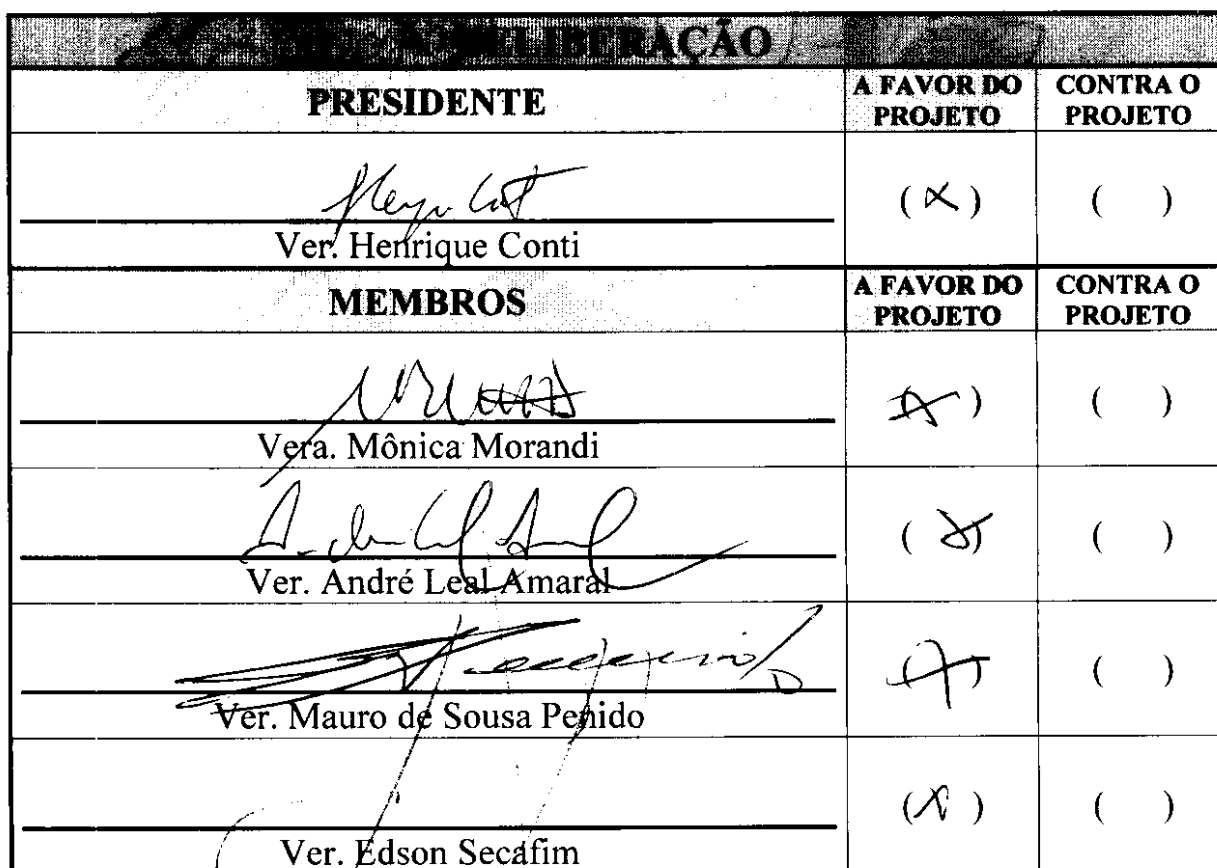 DELIBERAÇÃO
PRESIDENTE
A FAVOR DO PROJETO
CONTRA O PROJETO
(X)
( )
Ver. Henrique Conti
MEMBROS
A FAVOR DO PROJETO
CONTRA O PROJETO
(X)
( )
Vera. Mônica Morandi
(X)
( )
Ver. André Leal Amaral
(X)
( )
Ver. Mauro de Sousa Penido
(X)
( )
Ver. Edson Secafim